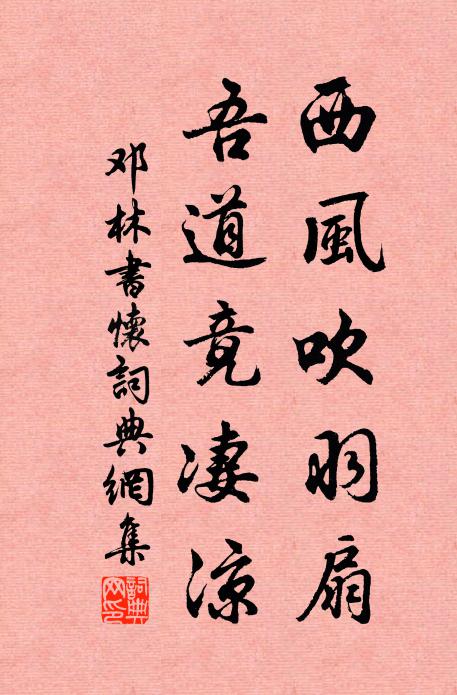 西風吹羽扇
吾道竟凄涼
邓林書懷詞典網集
詞典網印